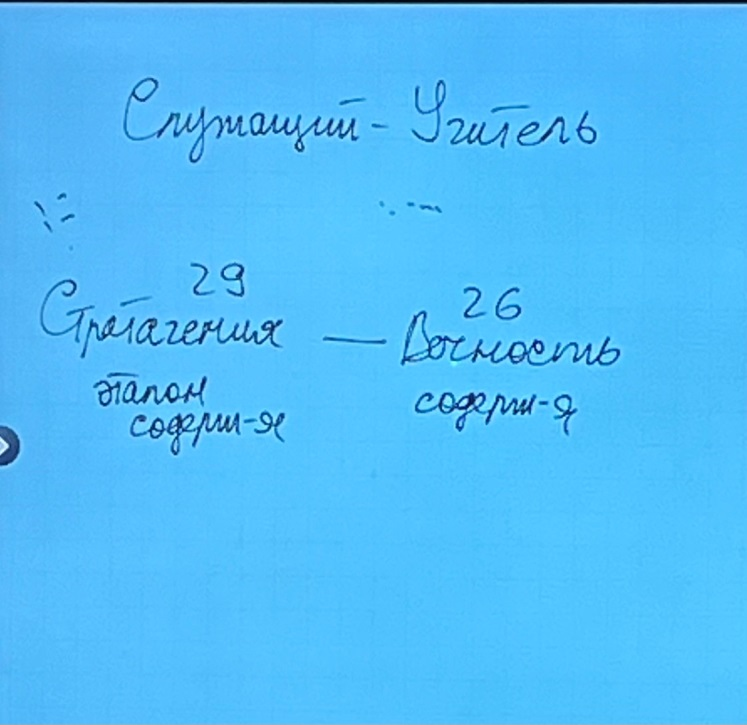 Служащий - Учитель
29
26
Стратагемия — Вечность
эталон
содерж-я
содерж-я